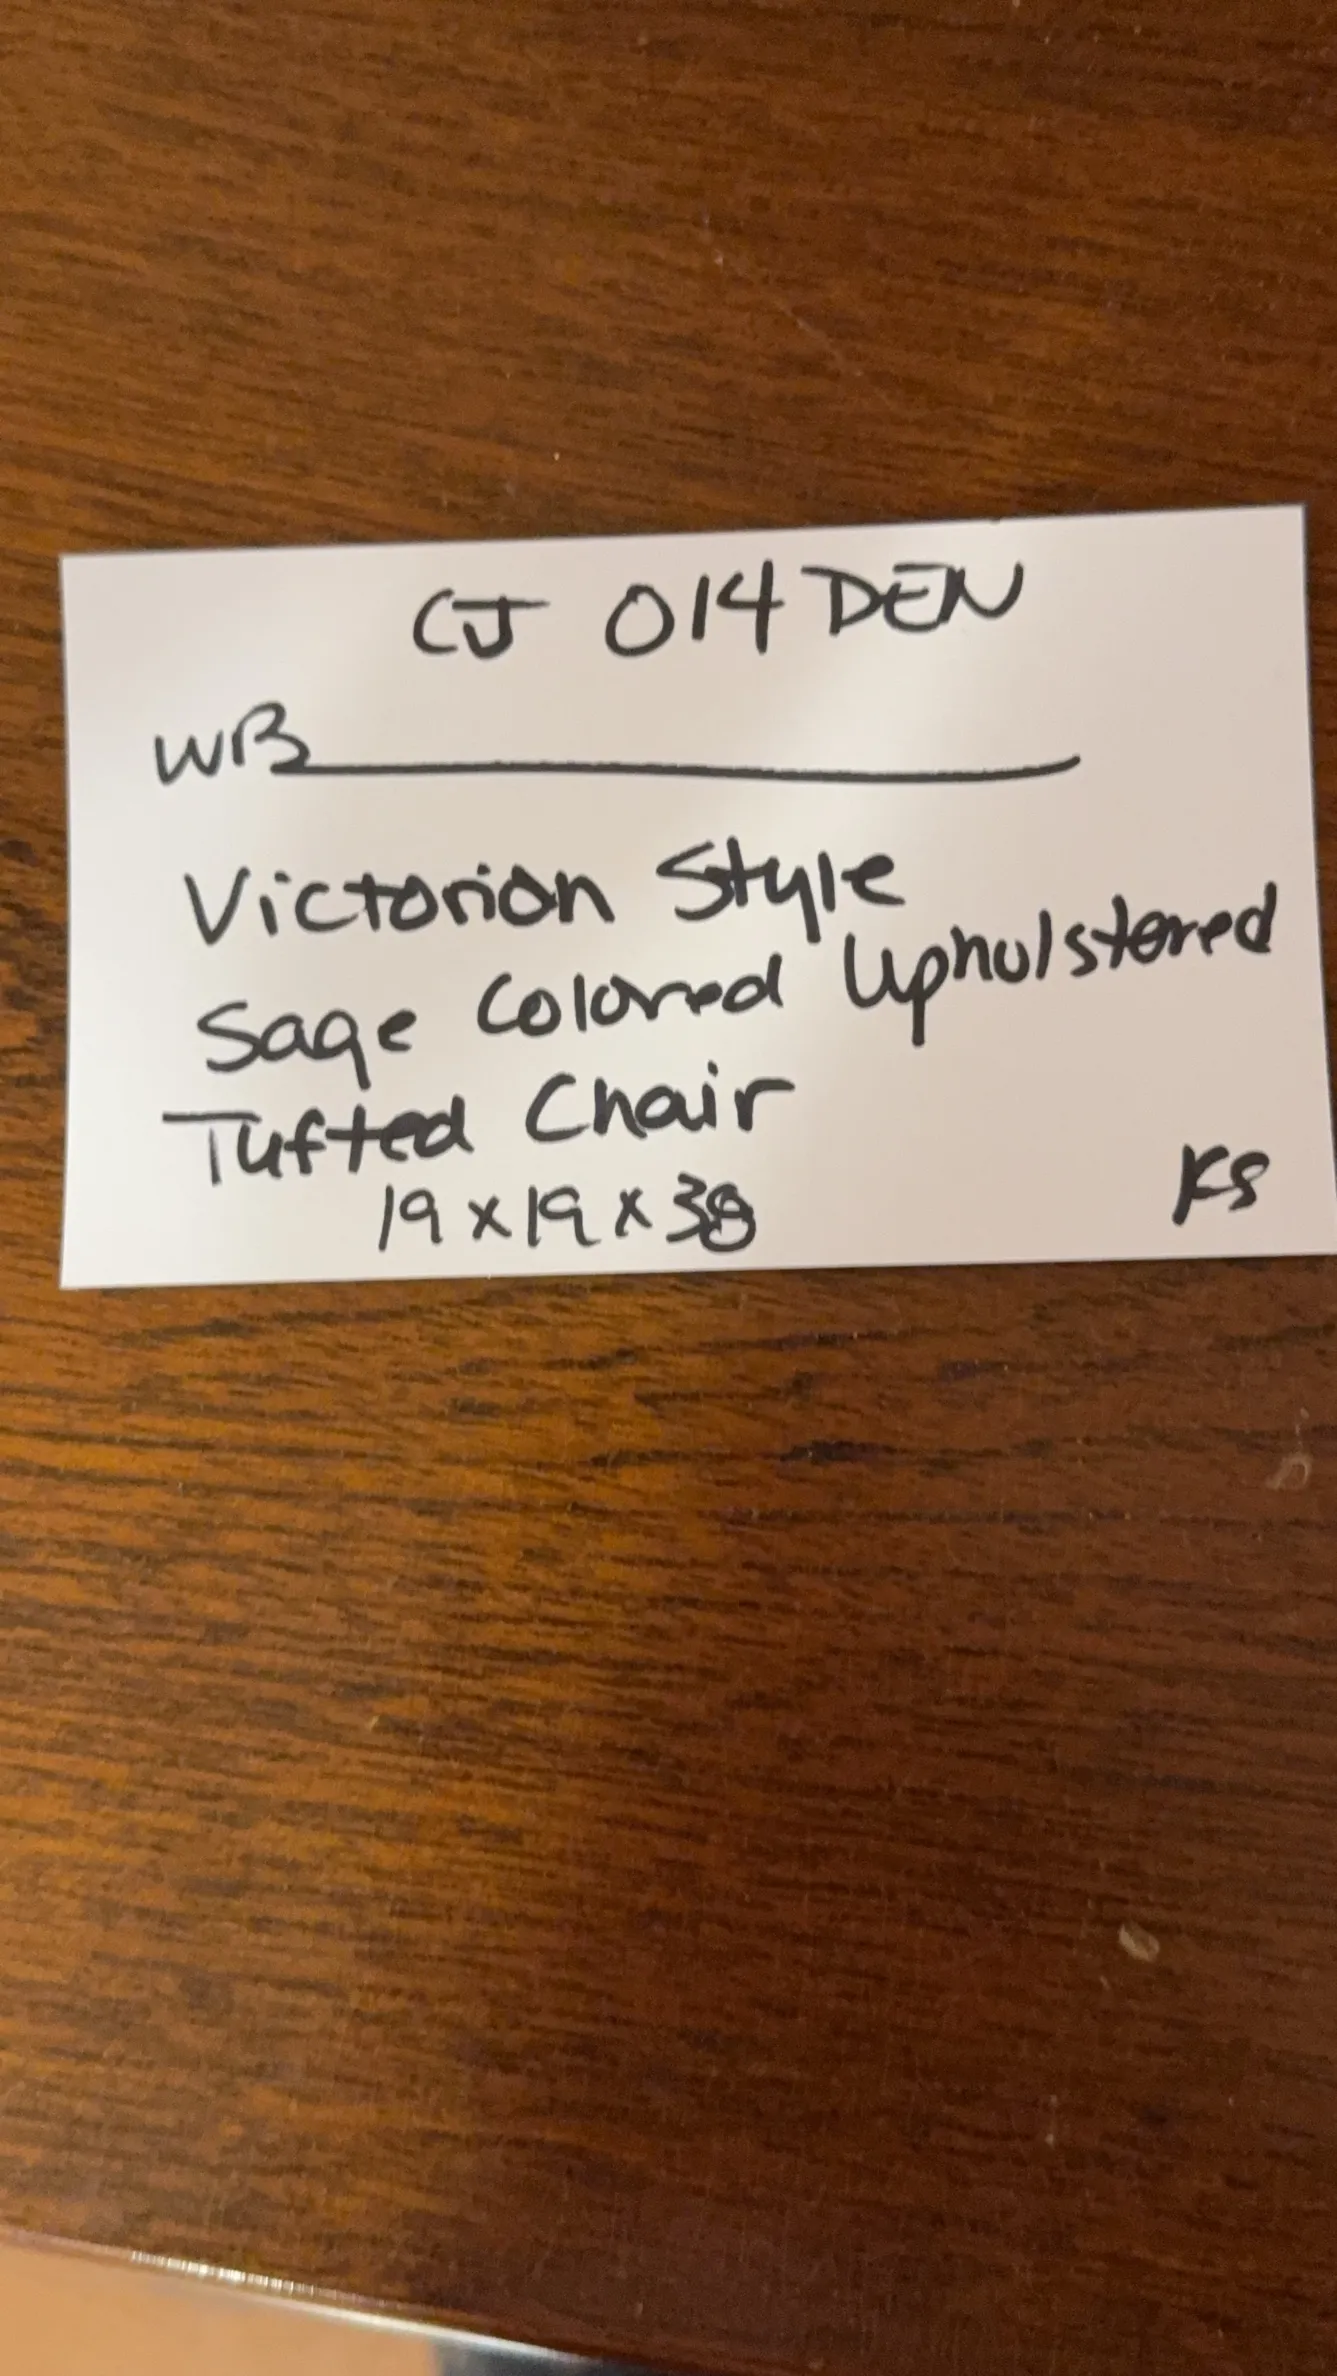 CJ 014 DEN
WB
Victorian Style
Sage Colored Upholstered
Tufted Chair
19 x 19 x 38
KS